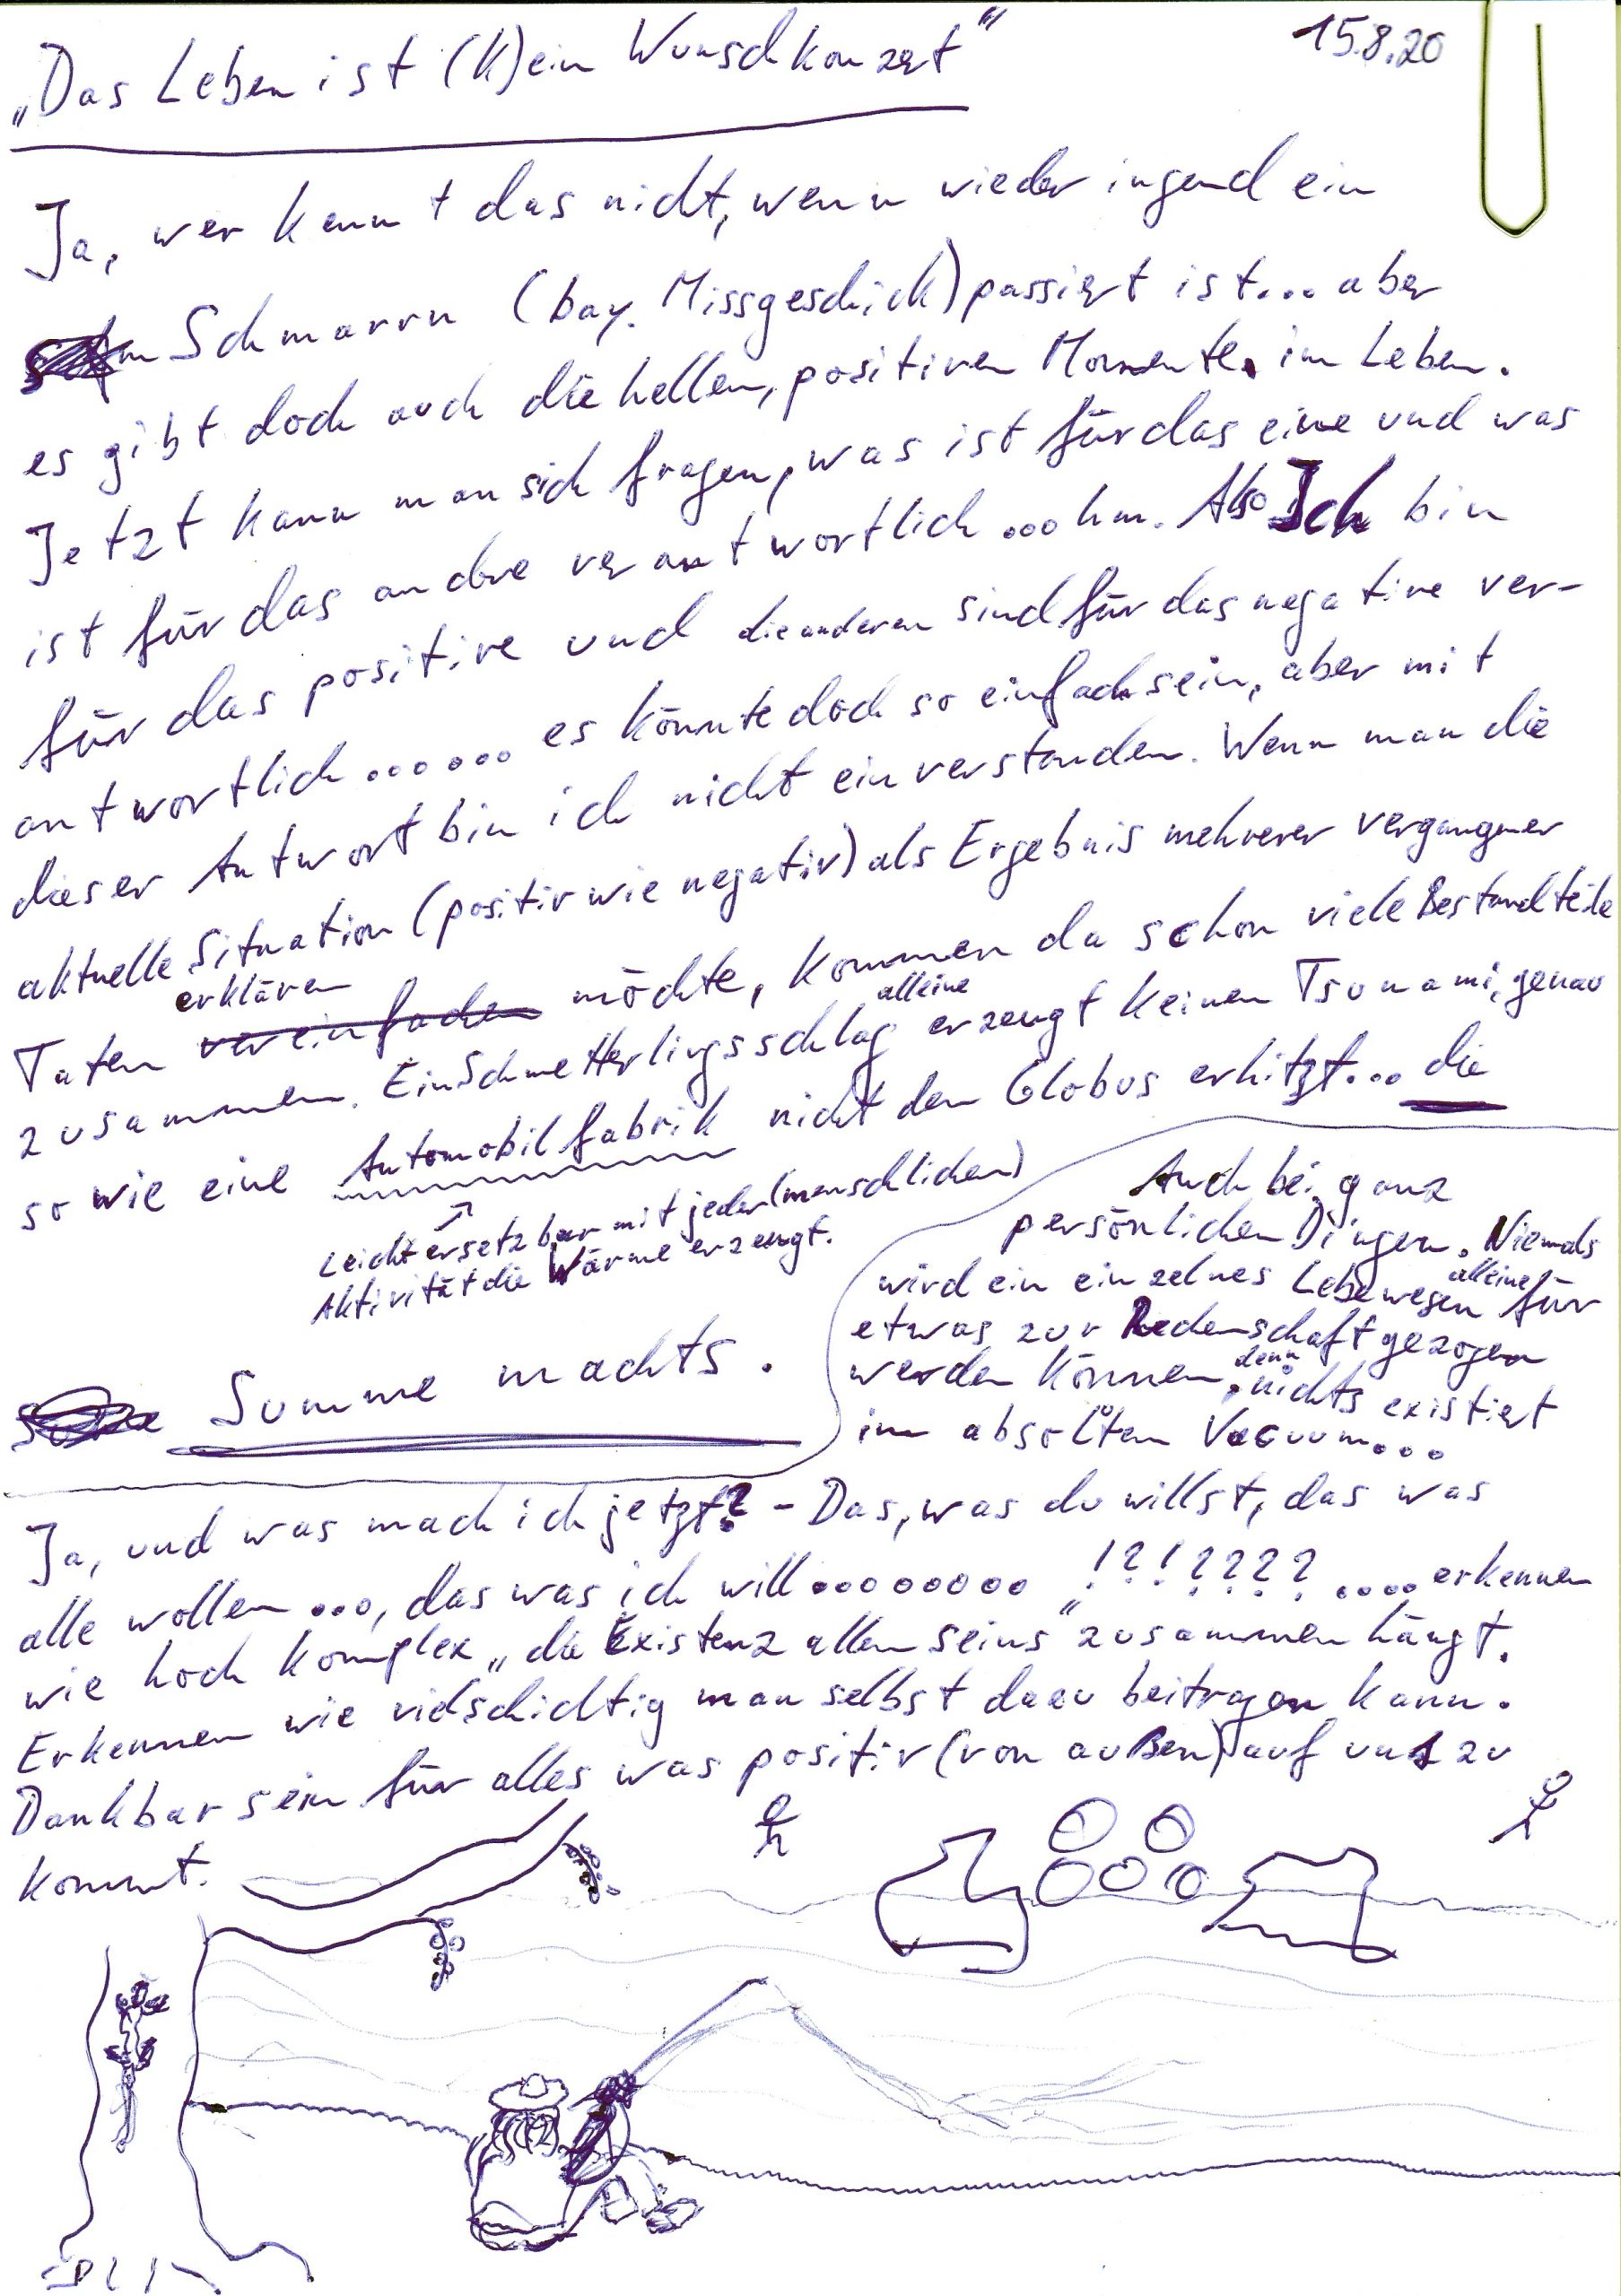 „Das Leben ist (k)ein Wunschkonzert"
15.8.20
Ja, wer kennt das nicht, wenn wieder irgend ein
Schmarrn (bay. Missgeschick) passiert ist... aber
es gibt doch auch die hellen, positiven Momente im Leben.
Jetzt kann man sich fragen, was ist für das eine und was
ist für das andere verantwortlich ... hm. Also Ich bin
für das positive und die anderen sind für das negative ver-
antwortlich ...... es könnte doch so einfach sein, aber mit
dieser Antwort bin ich nicht einverstanden. Wenn man die
aktuelle Situation (positiv wie negativ) als Ergebnis mehrerer vergangner
erklären
Taten vereinfachen möchte, kommen da schon viele Bestandteile
alleine
zusammen. Ein Schmetterlingsschlag erzeugt keinen Tsunami, genau
so wie eine Automobilfabrik nicht den Globus erhitzt... die
Leicht ersetzbar mit jeder (menschlichen)
Aktivität die Wärme erzeugt.
Summe machts.
Auch bei ganz
persönlichen Dingen. Niemals
alleine
wird ein einzelnes Lebewesen für
etwas zur Rechenschaft gezogen
denn
werden können, nichts existiert
im absolten Vacuum...
Ja, und was mach ich jetzt? - Das, was du willst, das was
alle wollen ..., das was ich will......... !?!???? .... erkennen
wie hoch komplex „die Existenz allen seins" zusammen hängt.
Erkennen wie vielschichtig man selbst dazu beitragen kann.
Dankbar sein für alles was positiv (von außen) auf uns zu
kommt.